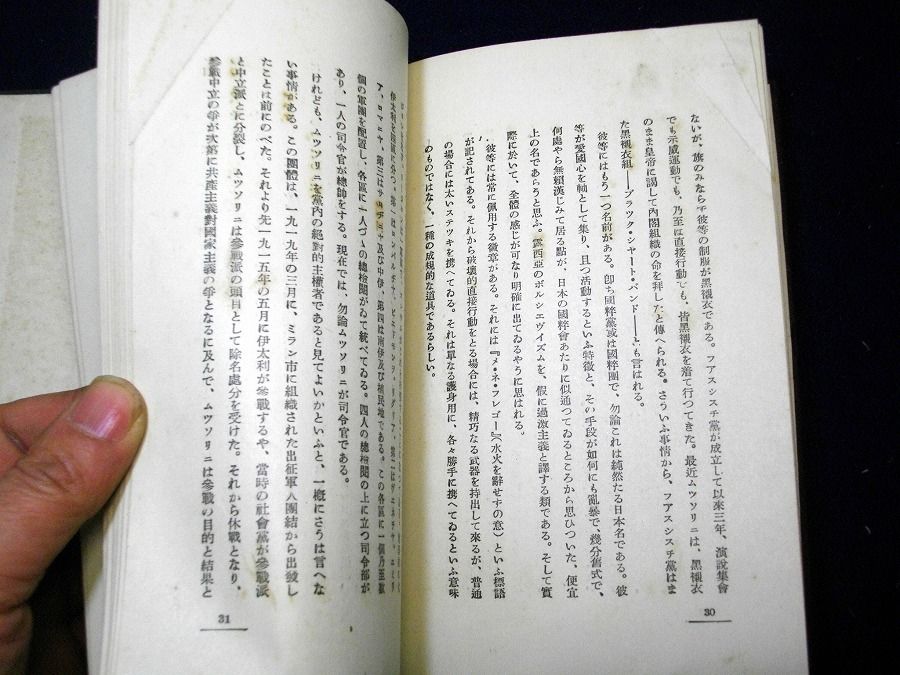 ないが、旗のみならず彼等の制服が黑襯衣である。フアスシスチ黨が成立して以來三年、演說集會
でも示威運動でも、乃至は直接行動でも、皆黑襯衣を着て行つてきた。最近ムツソリニは、黑襯衣
のまま皇帝に謁して內閣組織の命を拜したと傳へられる。さういふ事情から、フアスシスチ黨はま
た黑襯衣組――ブラツク・シヤート・バンド――とも言はれる。
彼等にはもう一つ名前がある。卽ち國粹黨或は國粹團で、勿論これは純然たる日本名である。彼
等が愛國心を軸として集り、且つ活動するといふ特徵と、その手段が如何にも亂暴で、幾分舊式で、
何處やら無賴漢じみて居る點が、日本の國粹會あたりに似通つてゐるところから思ひついた、便宜
上の名であらうと思ふ。露西亞のボルシエヴイズムを、假に過激主義と譯する類である。そして實
際に於いて、全體の感じが可なり明確に出てゐるやうに思はれる。
彼等には常に佩用する徽章がある。それには『メ・ネ・フレゴー』(水火を辭せずの意)といふ標語
が記されてある。それから破壞的直接行動をとる場合には、精巧なる武器を持出して來るが、普通
の場合には太いステツキを携へてゐる。それは單なる護身用に、各々勝手に携へてゐるといふ意味
のものではなく、一種の成規的な道具であるらしい。
30
伊太利を四區に分つ。第一は
ア、ロマニヤ、第三はサルヂニヤ及び中伊、第四は南伊及び植民地である。この各區に一個乃至數
個の軍團を配置し、各區に一人づゝの總檢閱がゐて統べてゐる。四人の總檢閱の上に立つ司令部が
あり、一人の司令官が總帥をする。現在では、勿論ムツソリニが司令官である。
けれども、ムツソリニを黨內の絕對的主權者であると見てよいかといふと、一槪にさうは言へな
い事情がある。この團體は、一九一九年の三月に、ミラン市に組織された出征軍人團結から出發し
たことは前にのべた。それより先一九一五年の五月に伊太利が參戰するや、當時の社會黨が參戰派
と中立派とに分裂し、ムツソリニは參戰派の頭目として除名處分を受けた。それから休戰となり、
參戰中立の爭が次第に共產主義對國家主義の爭となるに及んで、ムツソリニは參戰の目的と結果と
31